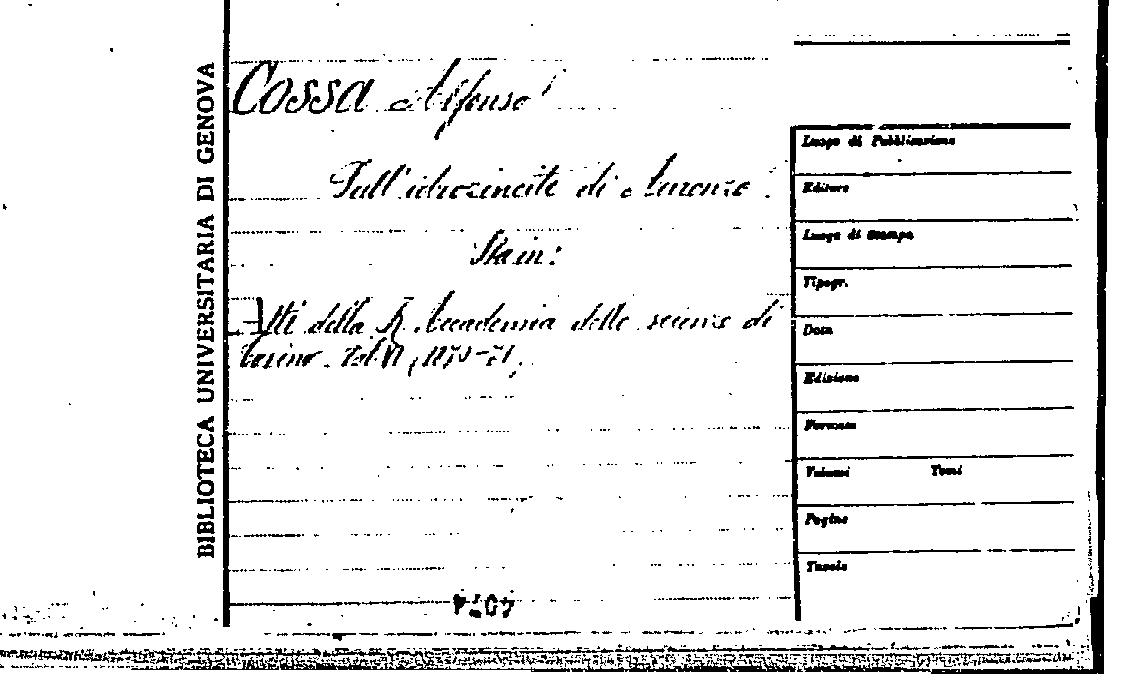 BIBLIOTECA UNIVERSITARIA DI GENOVA
COSSA Alfonso
Sull'idrozincite di Auronzo.
Sta in:
Atti della R. Accademia delle scienze di
Torino. Vol. VI (1870-71)
Luogo di Pubblicazione
Editore
Luogo di Stampa
Tipogr.
Data
Edizione
Formato
Volumi Tomi
Pagine
Tavole